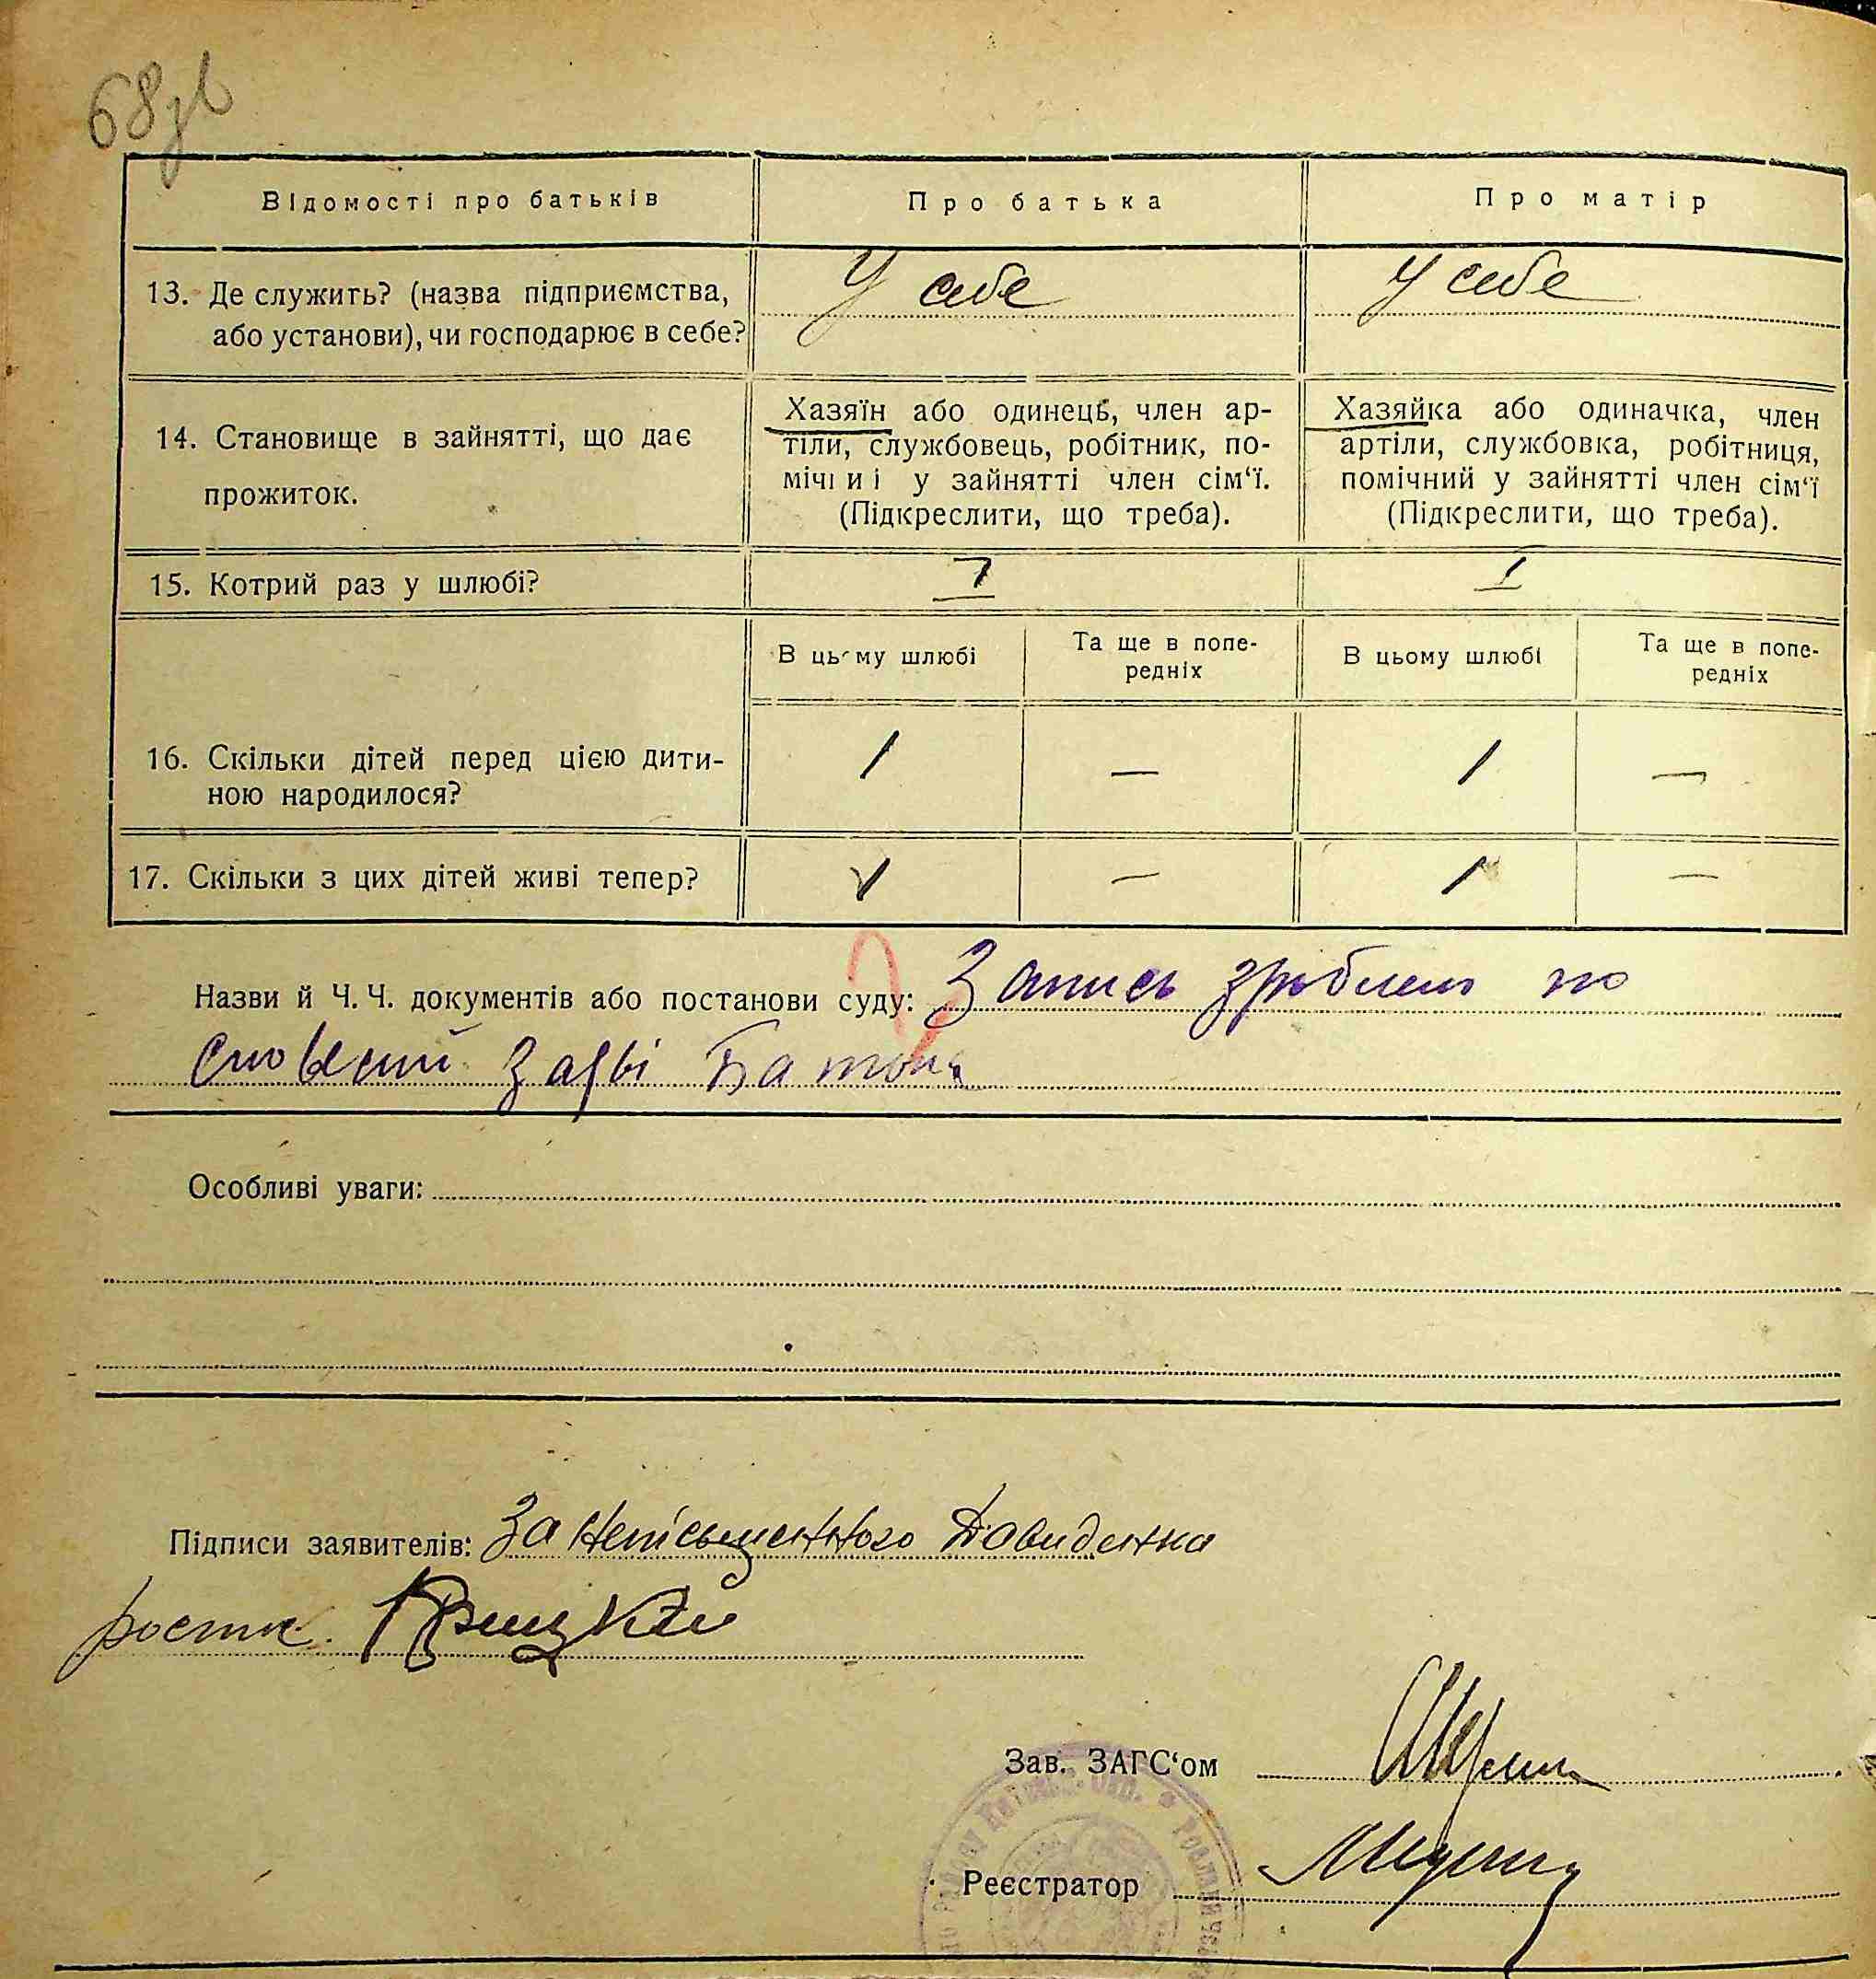 68зв
Відомості про батьків
Про батька
Про матір
13. Де служить? (назва підприємства,
або установи), чи господарює в себе?
У себе
У себе
14. Становище в зайнятті, що дає
прожиток.
Хазяїн або одинець, член ар-
тіли, службовець, робітник, по-
мічниі у зайнятті член сім‘ї.
(Підкреслити, що треба).
Хазяйка або одиначка, член
артіли, службовка, робітниця,
помічний у зайнятті член сім‘ї
(Підкреслити, що треба).
15. Котрий раз у шлюбі?
1
1
В цьому шлюбі
Та ще в попе-
редніх
В цьому шлюбі
Та ще в попе-
редніх
16. Скільки дітей перед цією дити-
ною народилося?
1
—
1
—
17. Скільки з цих дітей живі тепер?
1
—
1
—
Назви й Ч. Ч. документів або постанови суду: Запись зроблено по
словесній заяві Батька
Особливі уваги:
Підписи заявителів: За неписьменного Давиденка
роспис.
Зав. ЗАГС‘ом
Реєстратор